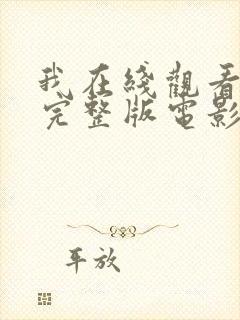 我在綫觀看
完整版電影
平放